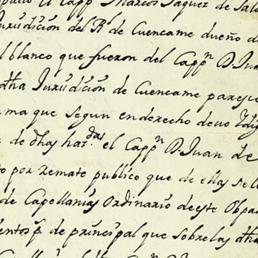 el Capp.n Marcos Jaquez de
Jurisdicion del R.l de Cuencame dueño de
l blanco que fueron del Capp.n D. Juan
dha Jurisdicion de Cuencame parexe
ma que segun en derecho devo
de dhas haz.das el Capp.n D. Juan de
to por remato publico que de ellas se
de Capellanias Ordinario de este Obpa
entos p.s de principal que sobre las dha